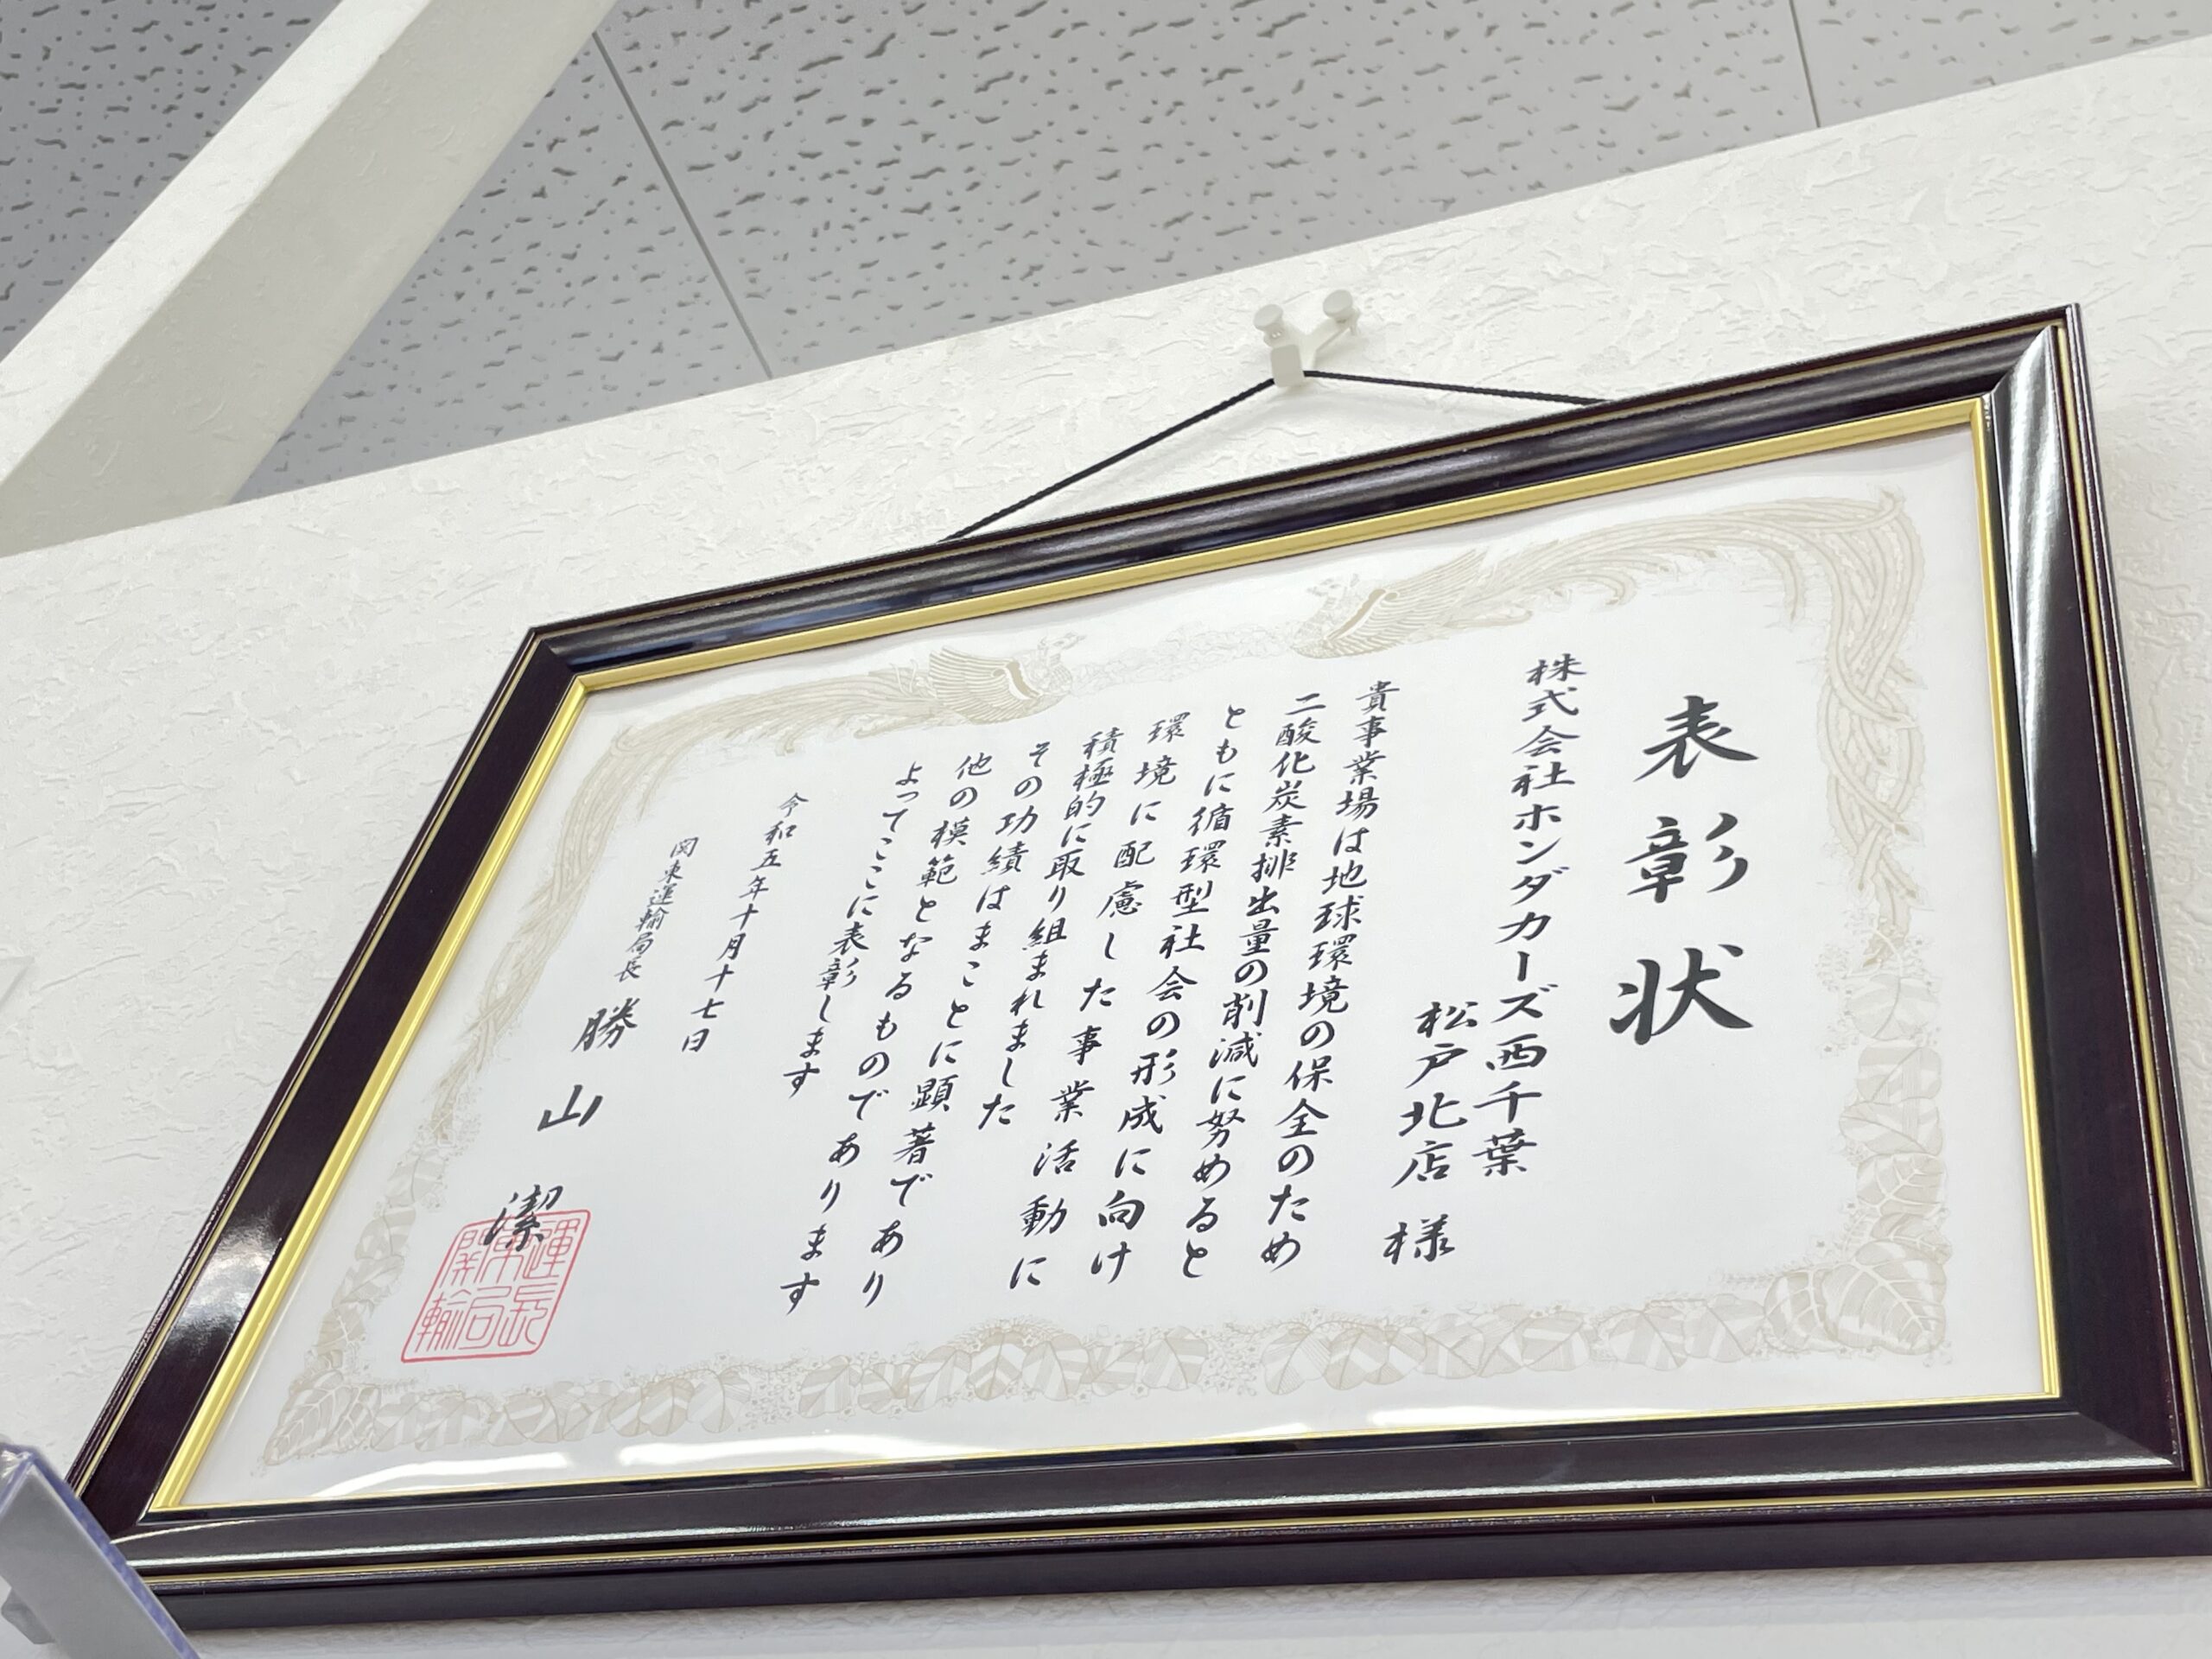 表彰状
株式会社ホンダカーズ西千葉
松戸北店 様
貴事業場は地球環境の保全のため
二酸化炭素排出量の削減に努めると
ともに循環型社会の形成に向け
環境に配慮した事業活動に
積極的に取り組まれました
その功績はまことに顕著であり
他の模範となるものであります
よってここに表彰します
令和五年十月十七日
関東運輸局長 勝山 潔
関東運輸局長